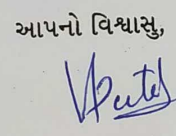 આપનો વિશ્વાસુ,